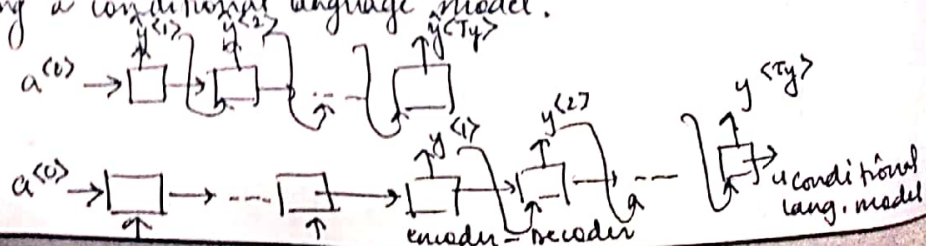 ng a conditional language model.
ŷ<1> ŷ<2> ŷ<Ty>
a<0> → → ... →
y<1> y<2> y<Ty>
a<0> → → ... → → → ...
encoder - Decoder
"conditional
lang. model